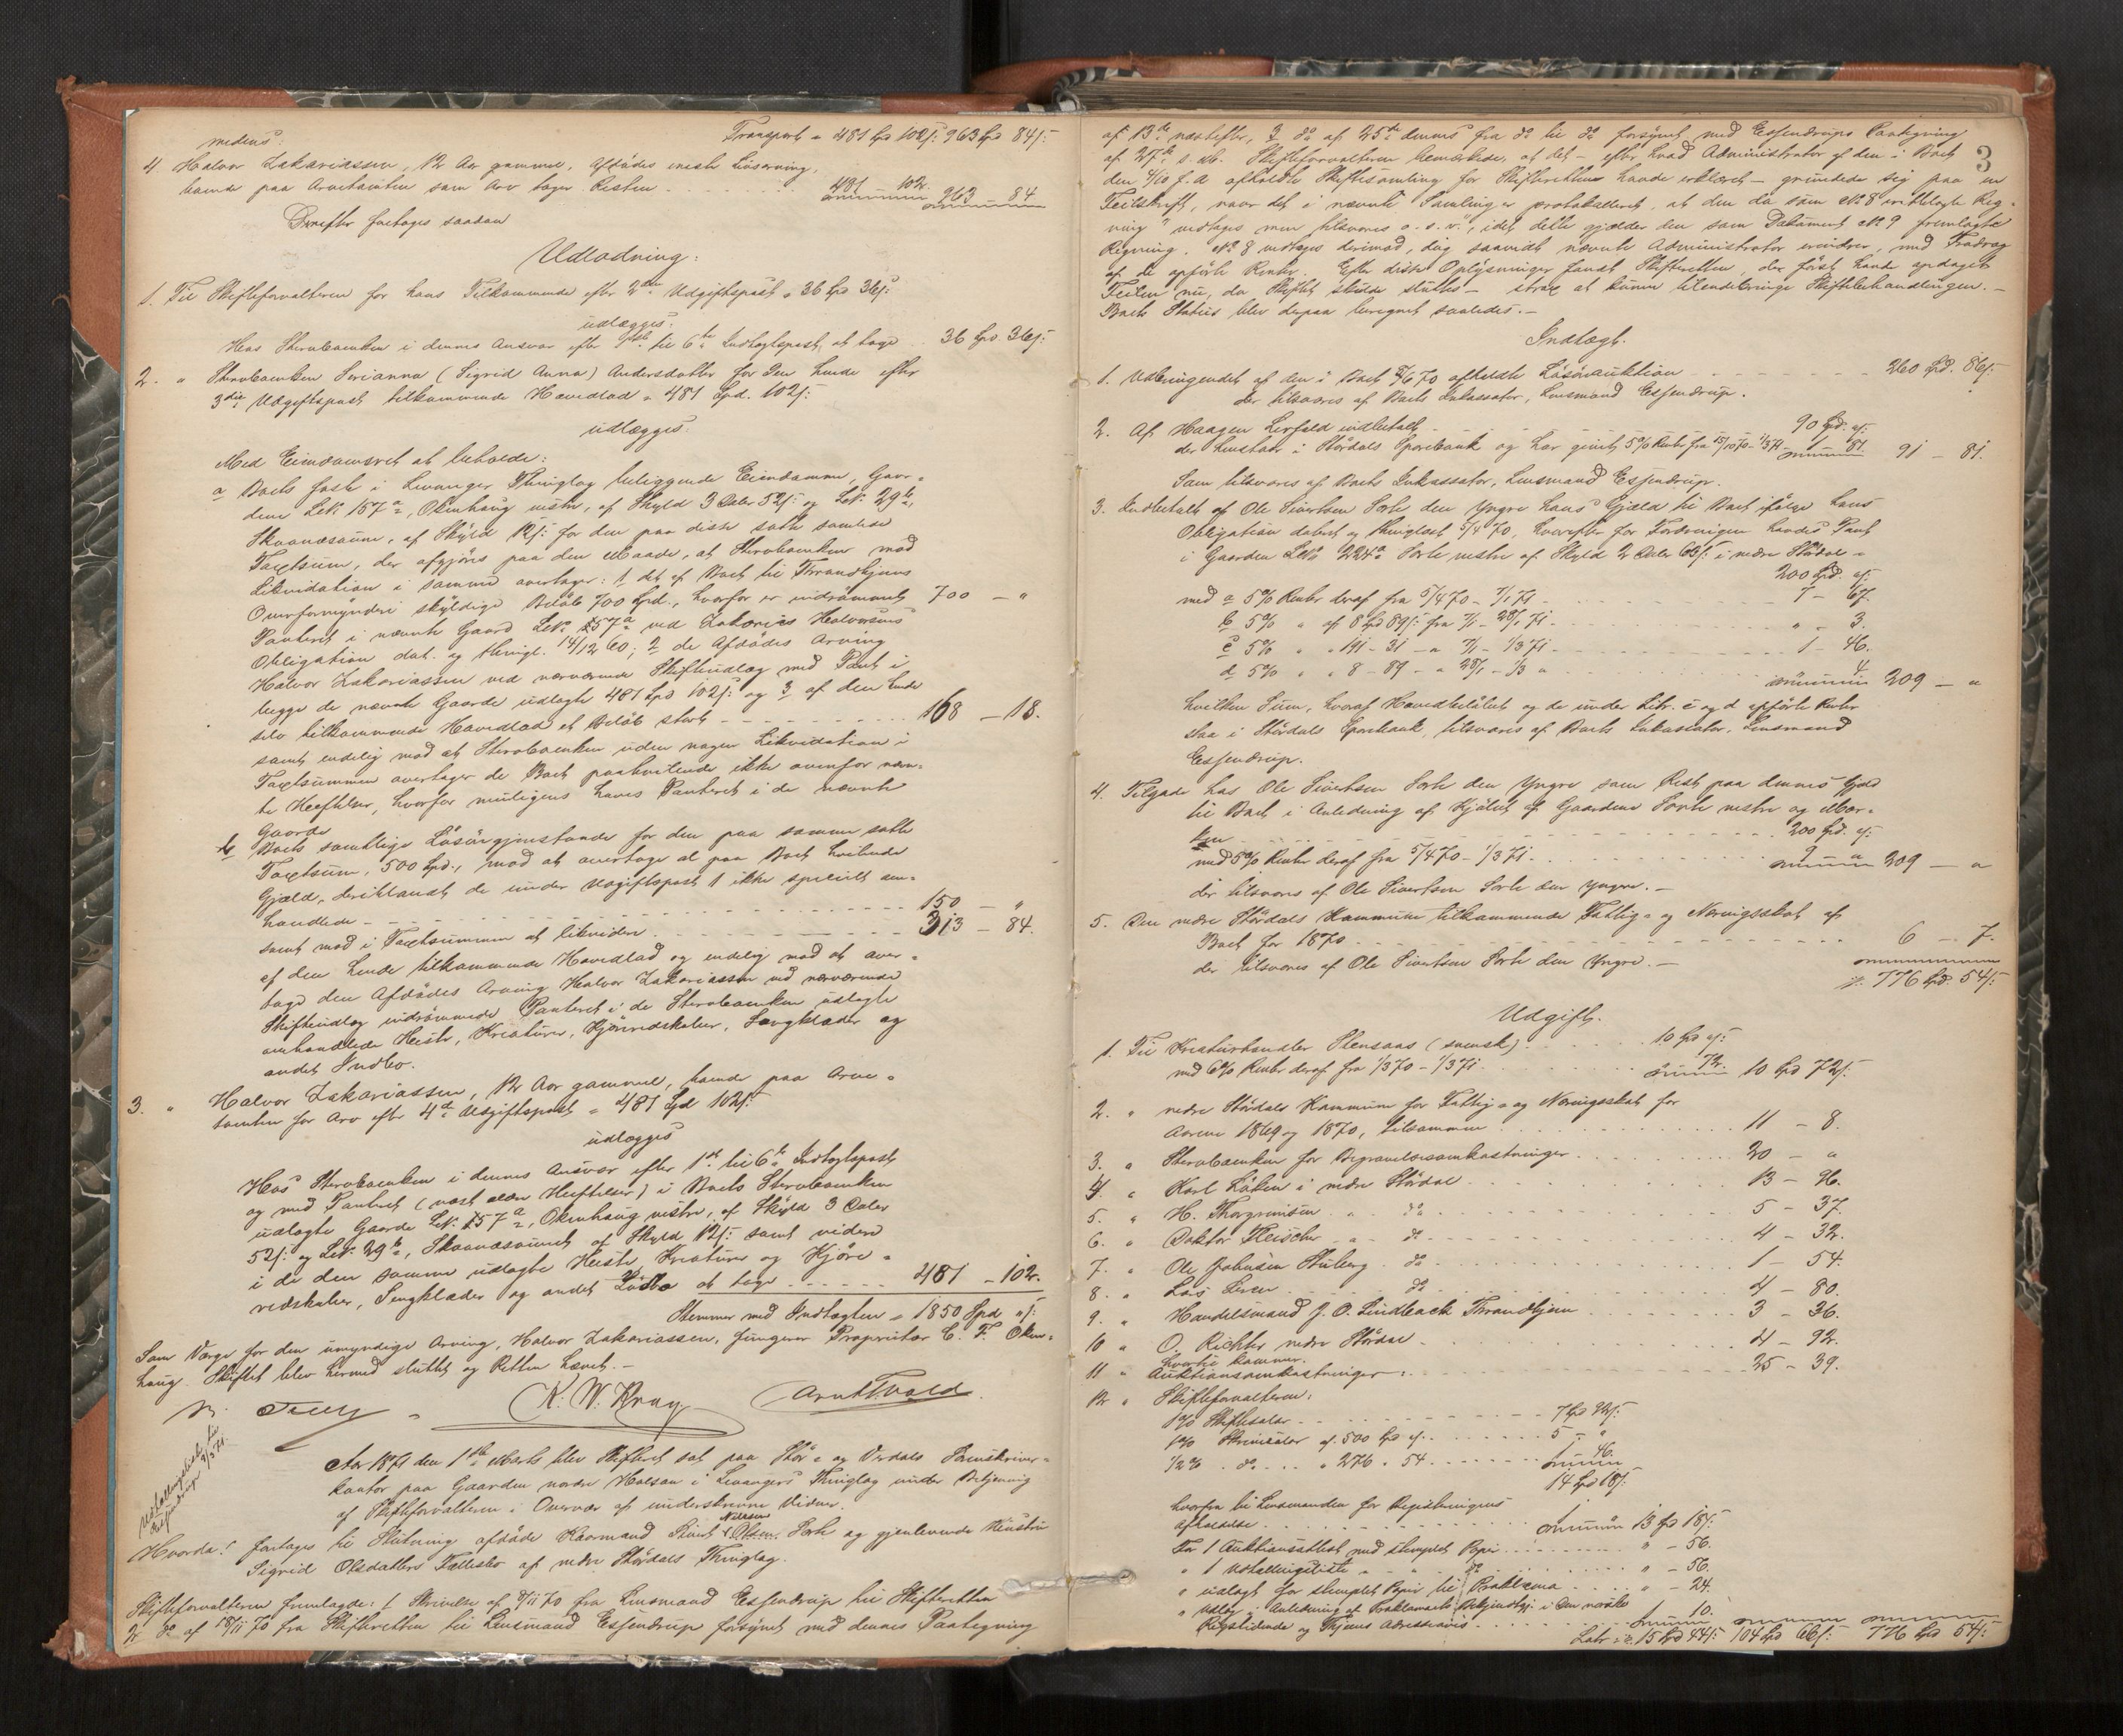 medens: Transport = 481 Spd 102 s: 963 Spd 84 s:
4 Halvor Zakariassen, 12 Aar gammel, Afdødes eneste Livsarving,
hvende paa Arvetomten som Arv tager Resten 481 102. 963 84
Derefter foretages saadan
Udlodning:
1. Til Skifteforvalteren for hans Tilkommende efter 2den Udgiftspost = 36 Spd 36 s:
udlægges:
Hos Stervboenken i dennes Ansvar efter 1ste til 6te Indtægtspost, at tage 36 Spd 36 s:
2. " Stervboenken Serianna (Sigrid Anna) Andersdatter for den hende efter
3die Udgiftspost tilkommende Hovedlod = 481 Spd. 102 s:
udlægges:
Med Eiendomsret at beholde:
a Boets faste i Levanger Thinglag beliggende Eiendomme, Gaar-
dene LNo. 157 a, Okenhaug vestre, af Skyld 3 Daler 52 s: og LNo. 29 b,
Skaanæsaunet, af Skyld 12 s: for den paa disse satte samlede
Taxtsum, der afgjøres paa den Maade, at Stervboenken mod
Likvidation i samme overtager: 1 det af Boet til Throndhjems
Overformynderi skyldige Beløb 700 Spd., hvorfor er indrømmet 700 – "
Panteret i nævnte Gaard LNo. 157 a ved Zakarias Halvorsens
Obligation dat. og thingl. 14/12 60; 2 de Afdødes Arving
Halvor Zakariassen ved nærværende Skifteudlæg med Pant i
begge de nævnte Gaarde udlagte 481 Spd 102 s: og 3 af den hende
selv tilkommende Hovedlod et Beløb stort 168 – 18.
samt endelig mod at Stervboenken uden nogen Likvidation i
Taxtsummen overtager de Boet paahvilende ikke ovenfor nævn-
te Heftelser, hvorfor muligens haves Panteret i de nævnte
Gaarde
b Boets samtlige Løsøregjenstande for den paa samme satte
Taxtsum, 500 Spd., mod at overtage al paa Boet hvilende
Gjæld, deriblandt de under Udgiftspost 1 ikke specielt om-
handlede 150 – "
samt mod i Taxtsummen at likvidere 313 – 84.
af den hende tilkommende Hovedlod og endelig mod at over-
tage den Afdødes Arving Halvor Zakariassen ved nærværende
Skifteudlæg indrømmede Panteret i de Stervboenken udlagte
omhandlede Heste, Kreaturer, Kjøreredskaber, Sengklæder og
andet Indbo.
3. " Halvor Zakariassen, 12 Aar gammel, hvende paa Arve-
tomten for Arv efter 4de Udgiftspost = 481 Spd 102 s:
udlægges
Hos Stervboenken i dennes Ansvar efter 1ste til 6te Indtægtspost
og med Panteret (næst ældre Heftelser) i Boets Stervboenken
udlagte Gaarde LNo. 157 a, Okenhaug vestre, af Skyld 3 Daler
52 s: og LNo. 29 b, Skaanæsaunet af Skyld 12 s: samt videre
i de den samme udlagte Heste, Kreaturer og Kjøre-
redskaber, Sengklæder og andet Indbo at tage 481 – 102.
Stemmer med Indtægten = 1850 Spd " s:
Som Værge for den umyndige Arving, Halvor Zakariassen, fungerer Proprietær C. F. Oken-
haug. Skiftet blev hermed sluttet og Retten hævet. –
K. W. Krag Arnt Tvold
Udfærdigelsesbet. til Essendrup 9/3 71.
Aar 1871 den 1ste Marts blev Skifteret sat paa Stør- og Værdals Sorenskriver-
kontor paa Gaarden nordre Halsan i Levangers Thinglag under Betjening
af Skifteforvalteren i Overvær af underskrevne Vidner.
Hvorda! foretages til Slutning afdøde Kaarmand Sivert Nilsen Olsen Sorte og gjenlevende Hustru
Sigrid Olsdatters Fællesbo af nedre Størdals Thinglag.
Skifteforvalteren fremlagde: 1 Skrivelse af 9/11 70 fra Lensmand Essendrup til Skifteretten
2 do af 18/11 70 fra Skifteretten til Lensmand Essendrup forsynet med dennes Paategning
3
af 13de næstefter, 3 do af 25de dennes fra do til do forsynet med Essendrups Paategning
af 27de s. M. Skifteforvalteren bemærkede, at det – efter hvad Administrator af den i Boet
den 4/10 f. A. afholdte Skiftesamling for Skifteretten havde erklæret – grundede sig paa en
Feilskrift, naar det i nævnte Samling er protokolleret, at den da som No. 8 indtagte Reg-
ning "vedtages men tilsvares o. s. v.", idet dette gjælder den som Dokument No. 9 fremlagte
Regning. No. 8 vedtages derimod, dog saavidt nævnte Administrator erindrer, med Fradrag
af de opførte Renter. Efter disse Oplysninger fandt Skifteretten, der først havde opdaget
Feilen nu, da Skiftet skulde sluttes – strax at kunne tilendebringe Skiftebehandlingen. –
Boets Status blev derpaa beregnet saaledes. –
Indtægt.
1. Udbringendet af den i Boet 8/6 70 afholdte Løsøreauktion 260 Spd. 86 s:
der tilsvares af Boets Inkassator, Lensmand Essendrup.
2. Af Haagen Lerfald indbetalt 90 Spd. " s:
der henstaar i Størdals Sparebank og har givet 5 % Renter fra 15/10 70 – 1/3 71 1 – 81. 91 – 81.
Som tilsvares af Boets Inkassator, Lensmand Essendrup.
3. Indbetalt af Ole Sivertsen Sorte den Yngre hans Gjæld til Boet ifølge hans
Obligation dateret og thinglæst 5/4 70, hvorefter for Fordringen havdes Pant
i Gaarden LNo. 224 a Sorte vestre af Skyld 2 Daler 66 s: i nedre Størdal =
200 Spd. " s:
med a 5 % Renter deraf fra 5/4 70 – 7/1 71 7 – 67.
b 5 % " af 8 Spd 89 s: fra 7/1 – 28/1 71 " – 3.
c 5 % " " 191 – 31 – " 7/1 – 1/3 71 1 – 46.
d 5 % " " 8 – 89 – " 28/1 – 1/3 " 4. 209 – "
hvilken Sum, hvoraf Hovedbeløbet og de under Litr. c og d opførte Renter
staa i Størdals Sparebank, tilsvares af Boets Inkassator, Lensmand
Essendrup.
4. Tilgode hos Ole Sivertsen Sorte den Yngre som Rest paa dennes Gjæld
til Boet i Anledning af Kjøbet af Gaardene Sorte vestre og Mær-
ken 200 Spd. " s:
med 5 % Renter deraf fra 5/4 70 – 1/3 71 9 " 209 – "
der tilsvares af Ole Sivertsen Sorte den Yngre. –
5. Den nedre Størdals Kommune tilkommende Fattig- og Næringsskat af
Boet for 1870 6 – 7.
der tilsvares af Ole Sivertsen Sorte den Yngre. –
776 Spd. 54 s:
Udgift.
1. Til Kreaturhandler Stensaas (svensk) 10 Spd " s:
med 6 % Renter deraf fra 1/3 70 – 1/3 71 72. 10 Spd 72 s:
2. " nedre Størdals Kommune for Fattig- og Næringsskat for
Aarene 1869 og 1870, tilsammen 11 – 8.
3. " Stervboenken for Begravelsesomkostninger 20 – "
4. " Karl Løken i nedre Størdal 13 – 96.
5. " H. Thorgrimsen " do 5 – 37.
6. " Doktor Fleischer " do 4 – 32.
7. " Ole Johnsen Stuberg do 1 – 54.
8. " Lars Leren do 4 – 80.
9. " Handelsmand J. O. Lindbach Throndhjem 3 – 36.
10 " O. Richter nedre Størdal 4 – 92.
hvortil kommer.
11 " Auktionsomkostninger: 25 – 39.
12 " Skifteforvalteren:
1 % Skiftesalær 7 Spd 92 s:
1 % Skrivesalær af 500 Spd " s: 5 – "
1/2 % do " 276 " 54 46.
14 Spd 18 s:
hvorfra til Lensmanden for Registreringens
Afholdelse 1 13 Spd 18 s:
For 1 Auktionsattest med stemplet Papir " – 56.
" 1 Udtællingsliste " – do " – 56.
" udlagt for stemplet Papir til Proklama " – 24.
" Udlæg i Anledning af Proklamaets Bekjendtgj. i den norske
Rigstidende og Thjems Adresseavis 1 10.
Latr = 15 Spd 44 s: 104 Spd 66 s: 776 Spd 54 s: